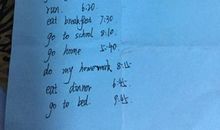 run. 6:20
eat breakfast 7:30
go to school 8:10.
go home 5:40.
do my homework 8:15
eat dinner 6:45
go to bed. 9:45.